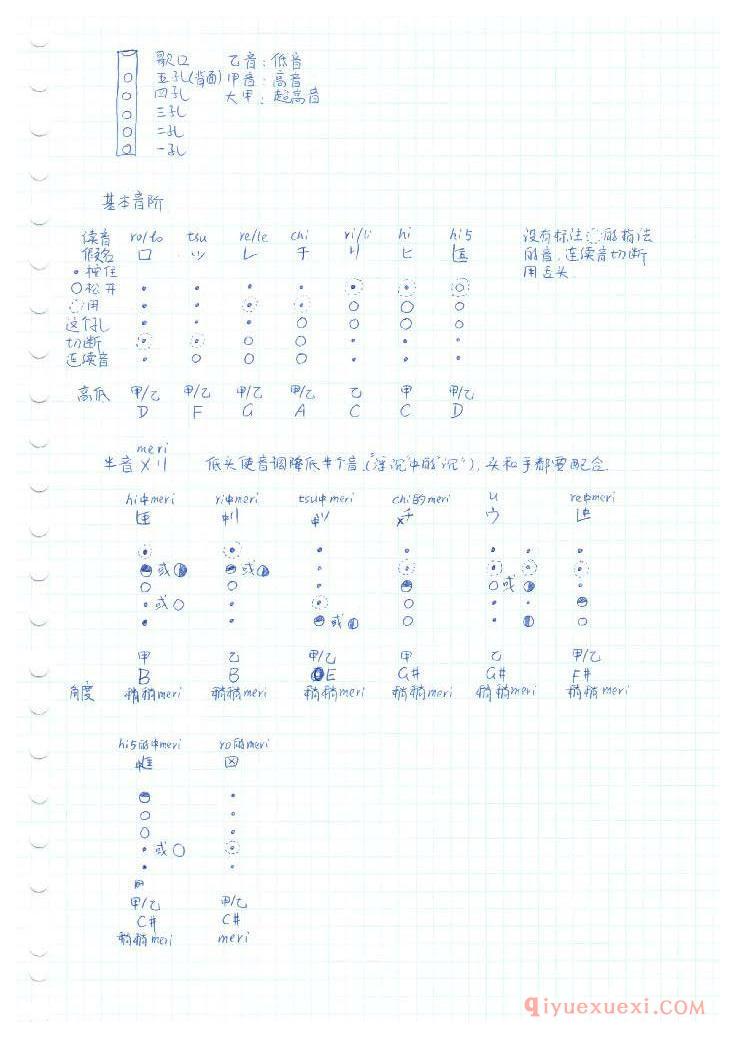 歌口 乙音：低音
五孔(背面) 甲音：高音
四孔 大甲：超高音
三孔
二孔
一孔
基本音阶
读音 ro/lo tsu re/le chi ri/li hi hi5
假名 ロ ツ レ チ リ ヒ
•按住
○松开
用
这个孔
切断
连续音
没有标注 的指法
的音，连续音切断
用舌头.
高低 甲/乙 甲/乙 甲/乙 甲/乙 乙 甲 甲/乙
D F G A C C D
meri
半音 メリ 低头使音调降低半个音，("浮沉"中的"沉")，头和手都要配合.
hi中meri ri中meri tsu中meri chi的meri u re中meri
ウ
或 或 或
或
或
甲 乙 甲/乙 甲 乙 甲/乙
B B E G# G# F#
角度 稍稍meri 稍稍meri 稍稍meri 稍稍meri 稍稍meri 稍稍meri
hi5的中meri ro的meri
或
甲/乙 甲/乙
C# C#
稍稍meri meri
qiyuexuexi.COM